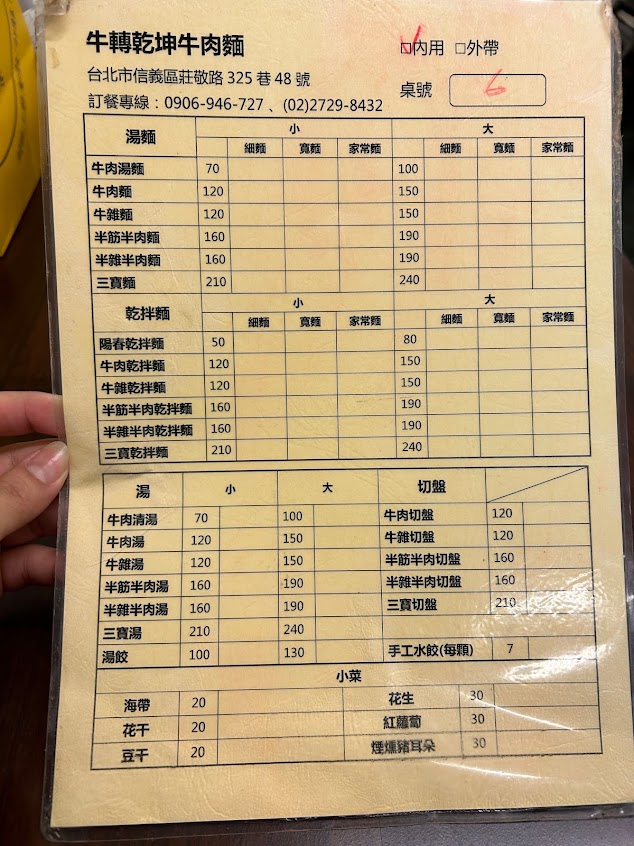 牛轉乾坤牛肉麵 □內用 □外帶
台北市信義區莊敬路 325 巷 48 號
桌號 6
訂餐專線：0906-946-727 、(02)2729-8432
湯麵 小 大
細麵 寬麵 家常麵 細麵 寬麵 家常麵
牛肉湯麵 70 100
牛肉麵 120 150
牛雜麵 120 150
半筋半肉麵 160 190
半雜半肉麵 160 190
三寶麵 210 240
乾拌麵 小 大
細麵 寬麵 家常麵 細麵 寬麵 家常麵
陽春乾拌麵 50 80
牛肉乾拌麵 120 150
牛雜乾拌麵 120 150
半筋半肉乾拌麵 160 190
半雜半肉乾拌麵 160 190
三寶乾拌麵 210 240
湯 小 大 切盤
牛肉清湯 70 100 牛肉切盤 120
牛肉湯 120 150 牛雜切盤 120
牛雜湯 120 150 半筋半肉切盤 160
半筋半肉湯 160 190 半雜半肉切盤 160
半雜半肉湯 160 190 三寶切盤 210
三寶湯 210 240
湯餃 100 130 手工水餃(每顆) 7
小菜
海帶 20 花生 30
花干 20 紅蘿蔔 30
豆干 20 煙燻豬耳朵 30